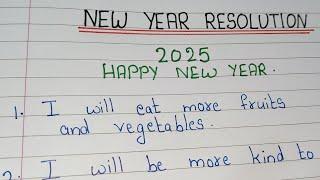 NEW YEAR RESOLUTION
2025
HAPPY NEW YEAR.
1. I will eat more fruits
and vegetables.
2. I will be more kind to